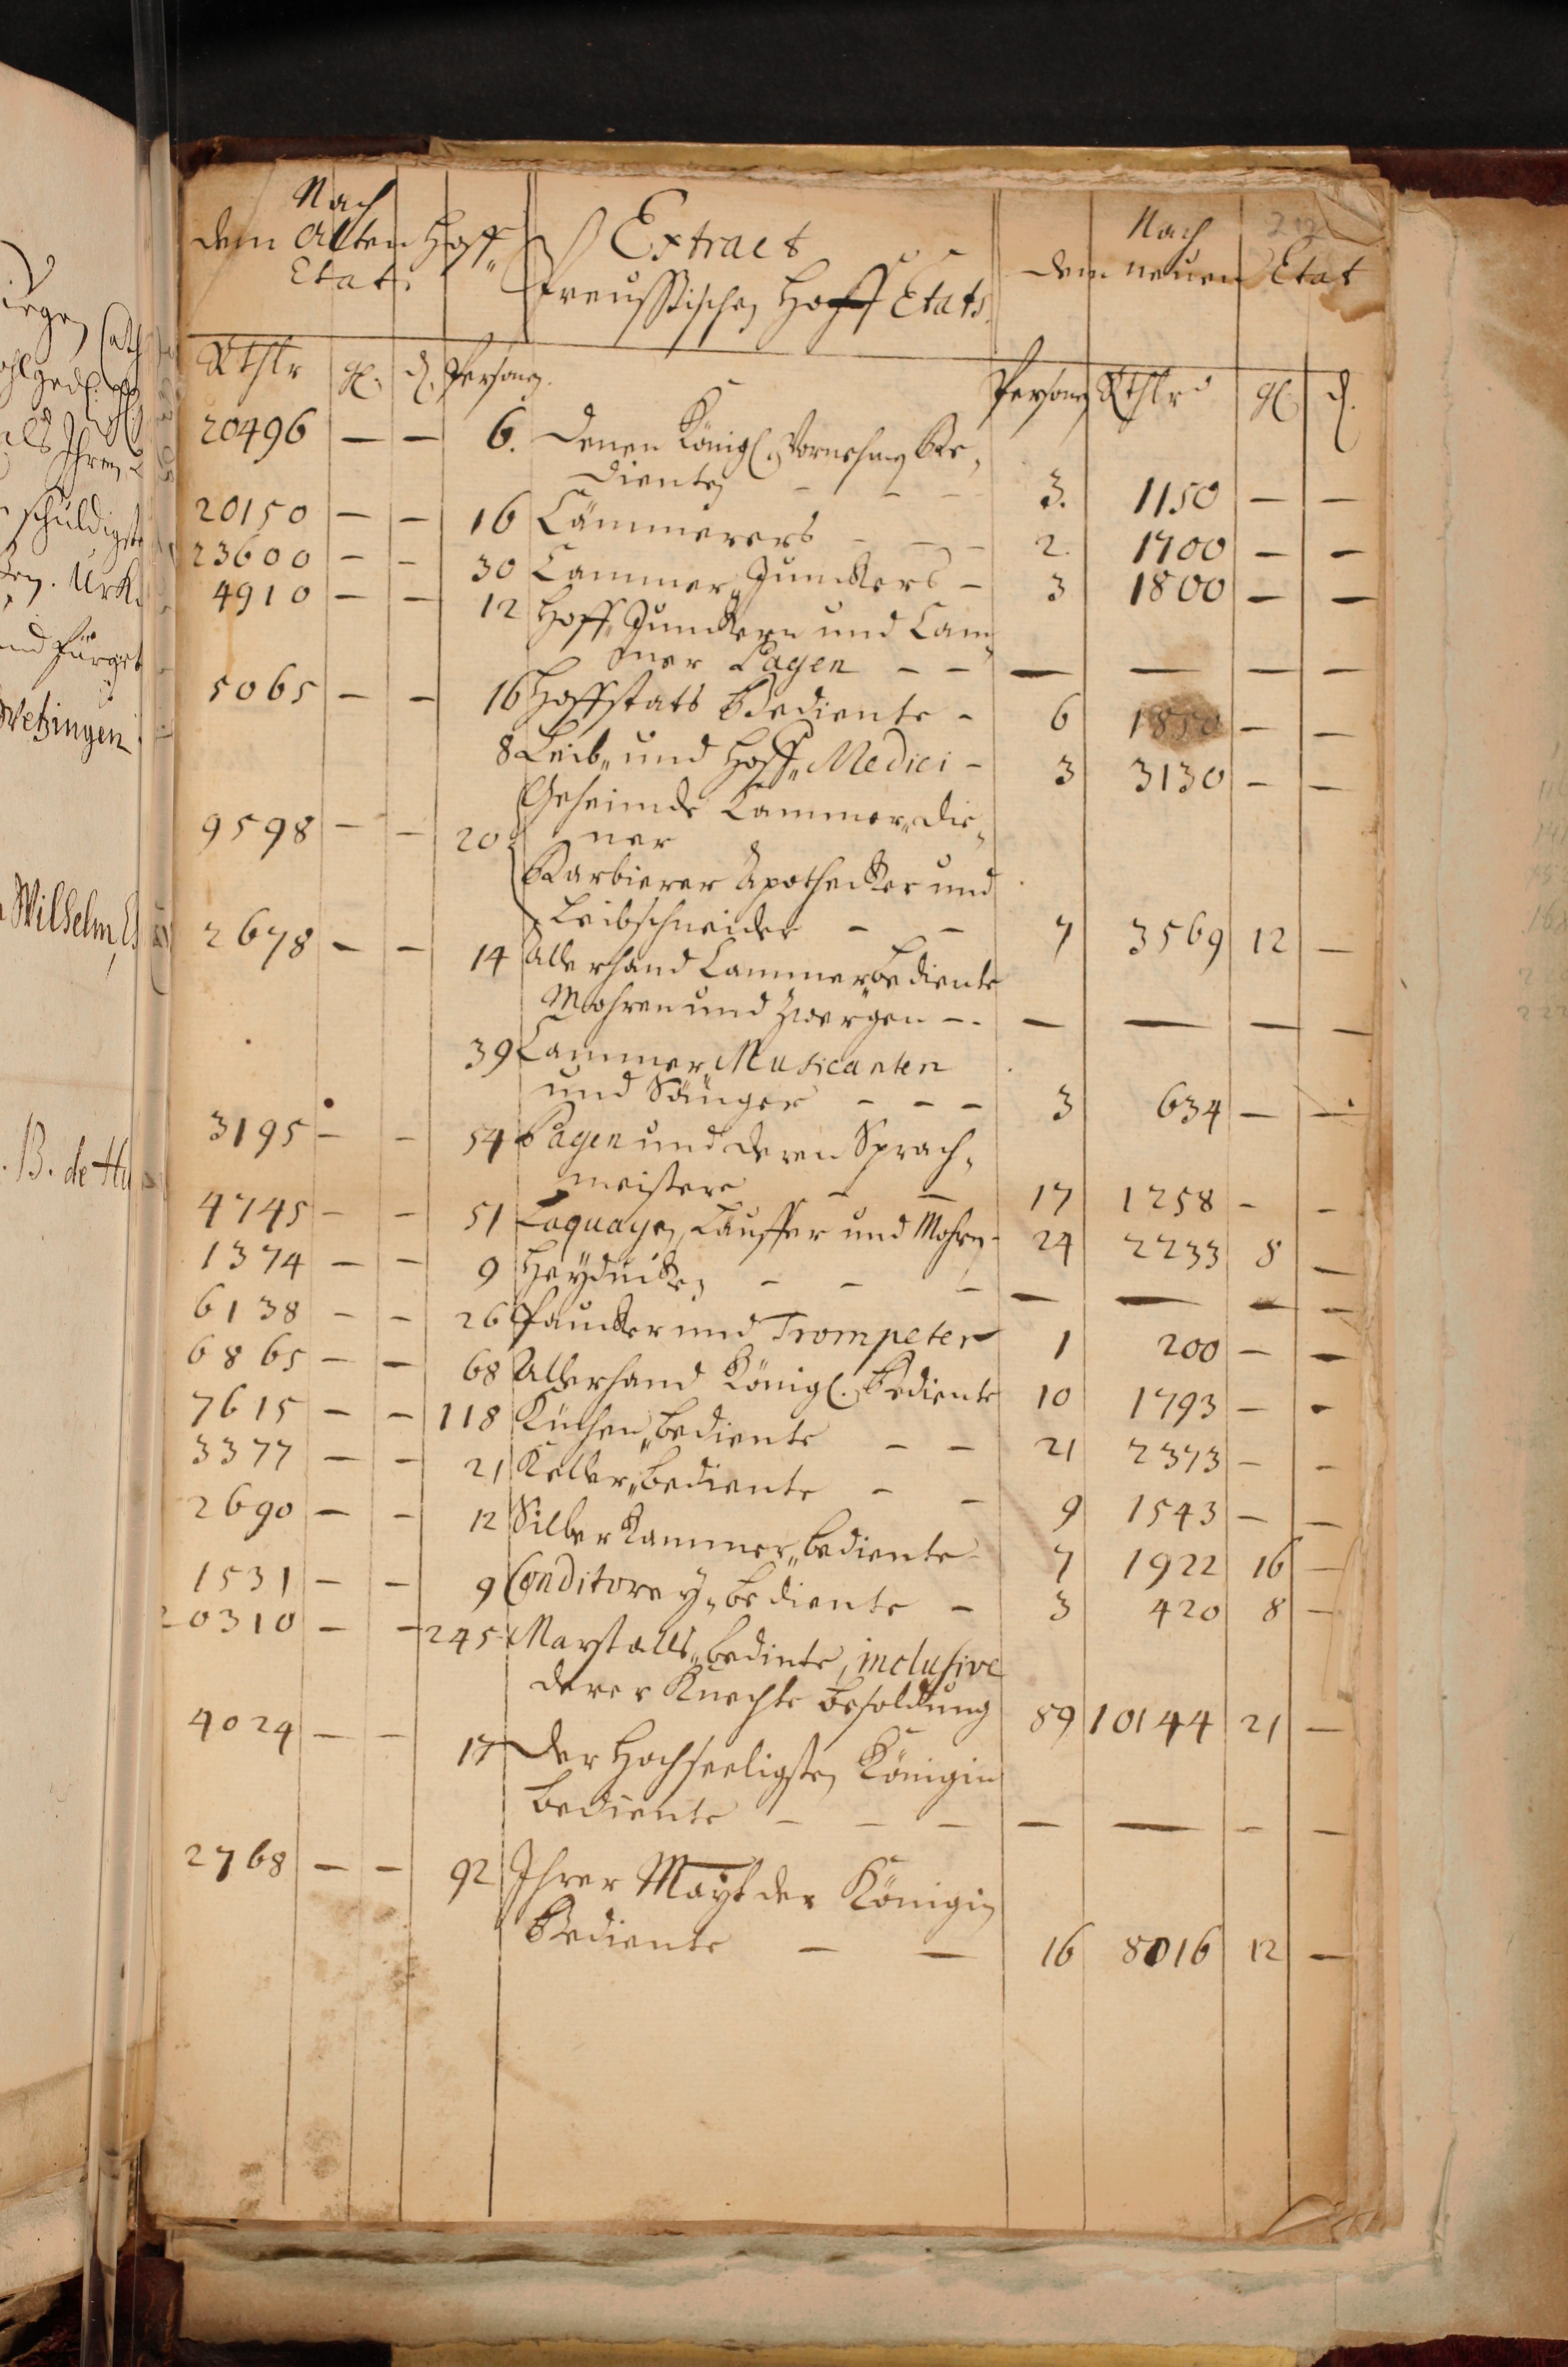 Nach
dem Alten Hoff„
Etat.
Extract
Preussischen Hoff Etats
Nach
dem neuen Etat
Rthlr gl. d. Persohnen.
Persohnen Rthlr gl. d.
20496 — — 6. Denen Königl. Vornehmen Be„
dienten — — — 3. 1150 — —
20150 — — 16 Cämmerers — — — 2. 1700 — —
23600 — — 30 Cammer„Junckers — 3 1800 — —
4910 — — 12 Hoff„Junckern und Cam„
mer Pagen — — — — — —
5065 — — 16 Hoffstats Bediente — 6 1850 — —
8 Leib„ und Hoff„Medici — 3 3130 — —
Geheimde Cammer„die„
9598 — — 20 ner
Barbierer Apothecker und
Leibschneider — — 7 3569 12 —
2678 — — 14 Allerhand Cammer„bediente
Mohren und Zwergen — — — — —
39 Cammer„Musicanten
und Sänger — — — 3 634 — —
3195 — — 54 Pagen und deren Sprach„
meistere — — 17 1258 — —
4745 — — 51 Laquayen, Läuffer und Mohren — 24 2233 8 —
1374 — — 9 Heyducken — — — — — — —
6138 — — 26 Paucker und Trompeter 1 200 — —
6865 — — 68 Allerhand Königl. Bediente 10 1793 — —
7615 — — 118 Küchen„bediente — — 21 2373 — —
3377 — — 21 Keller„bediente — — 9 1543 — —
2690 — — 12 Silber Kammer„bediente — 7 1922 16 —
1531 — — 9 Conditorey„bediente — 3 420 8 —
20310 — — 245 Marstalls„bediente, inclusive
derer Knechte besoldung 89 10144 21 —
4024 — — 17 Der Hochseeligsten Königin
bediente — — — — — — —
2768 — — 92 Ihrer Mayt der Königin
Bediente — — 16 8016 12 —
schuldigst
Urk.
Wetzingen
Wilhelm
B. de Hu